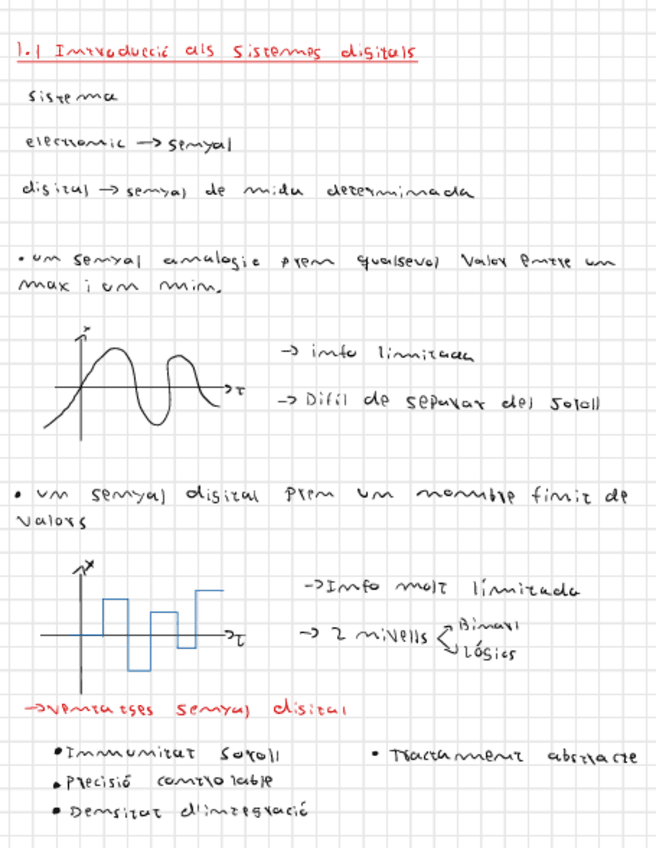 1.1 Introducció als sistemes digitals
sistema
electronic → senyal
digital → senyal de mida determinada
• un senyal analogic pren qualsevol valor entre un
max i un min.
x
→ info limitada
t
→ Difil de separar del soroll
• un senyal digital pren un nombre finit de
valors
x
→ Info molt limitada
→ 2 nivells
Binari
Lògics
t
→ ventatges senyal digital
• Immunitat soroll
• Tractament abstracte
• Precisió controlable
• Densitat d'integració